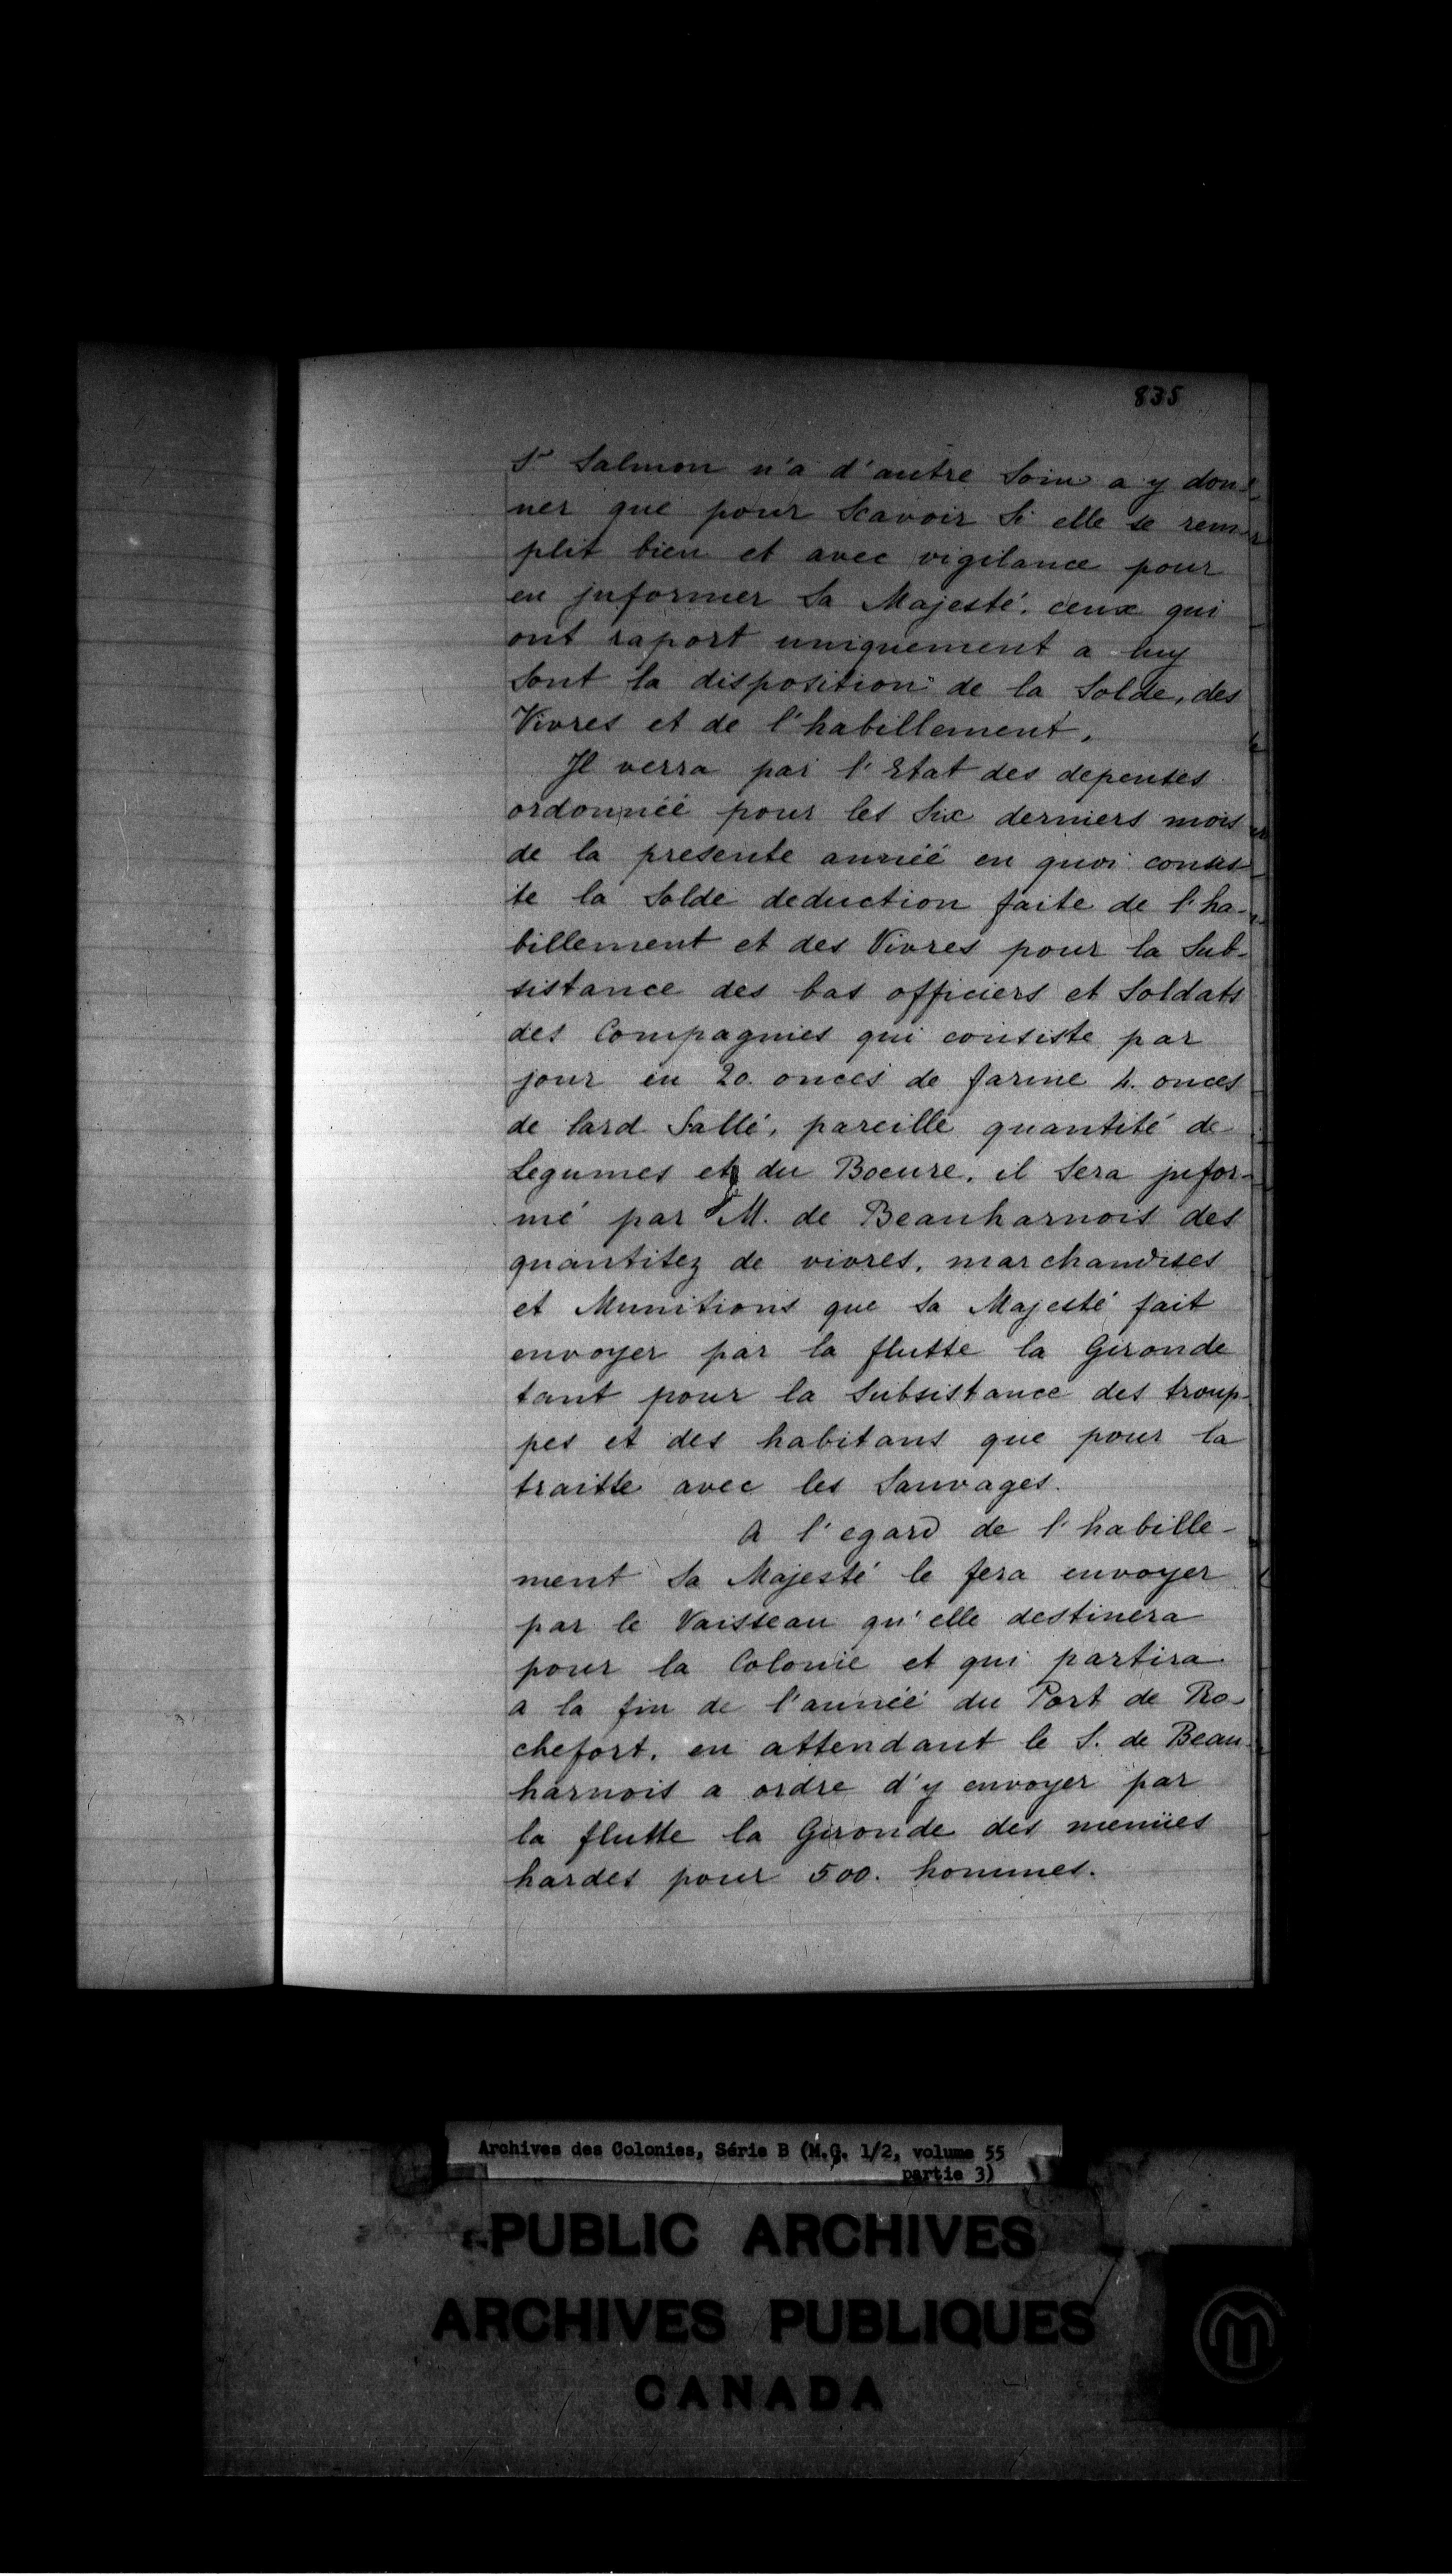 835
Sr Salmon n'a d'autre Soin a y don-
ner que pour Scavoir Si elle se rem-
plit bien et avec vigilance pour
en jnformer Sa Majesté. ceux qui
ont raport uniquement a luy
Sont la disposition de la Solde, des
Vivres et de l'habillement.
Jl verra par l'Etat des depenses
ordonnéé pour les Six derniers mois
de la presente annéé en quoi consis-
te la Solde deduction faite de l'ha-
billement et des Vivres pour la Sub-
sistance des bas officiers et Soldats
des Compagnies qui consiste par
jour en 20. onces de farine 4. onces
de lard Sallé, pareille quantité de
Legumes et du Boeure. il Sera jnfor-
mé par M. de Beauharnois des
quantitez de vivres, marchandises
et Munitions que Sa Majesté fait
envoyer par la flutte la Gironde
tant pour la Subsistance des troup-
pes et des habitans que pour la
traitte avec les Sauvages.
A l'egard de l'habille-
ment Sa Majesté le fera envoyer
par le Vaisseau qu'elle destinera
pour la Colonie et qui partira
a la fin de l'annéé du Port de Ro-
chefort. en attendant le S. de Beau-
harnois a ordre d'y envoyer par
la flutte la Gironde des menües
hardes pour 500. hommes.
Archives des Colonies, Série B (M.G. 1/2, volume 55
partie 3)
PUBLIC ARCHIVES
ARCHIVES PUBLIQUES
CANADA